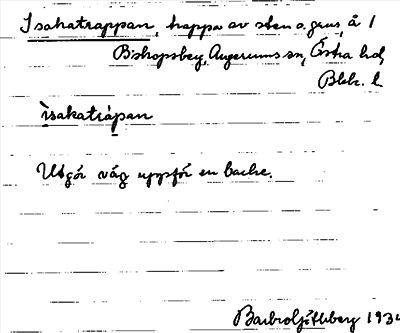 Isakatrappan, trappa av sten o. grus, å 1
Biskopsberg, Augerums sn, Östra hd,
Blek. l
ìsakatràpan
Utgör väg uppför en backe.
Barbro Ljöttberg 193